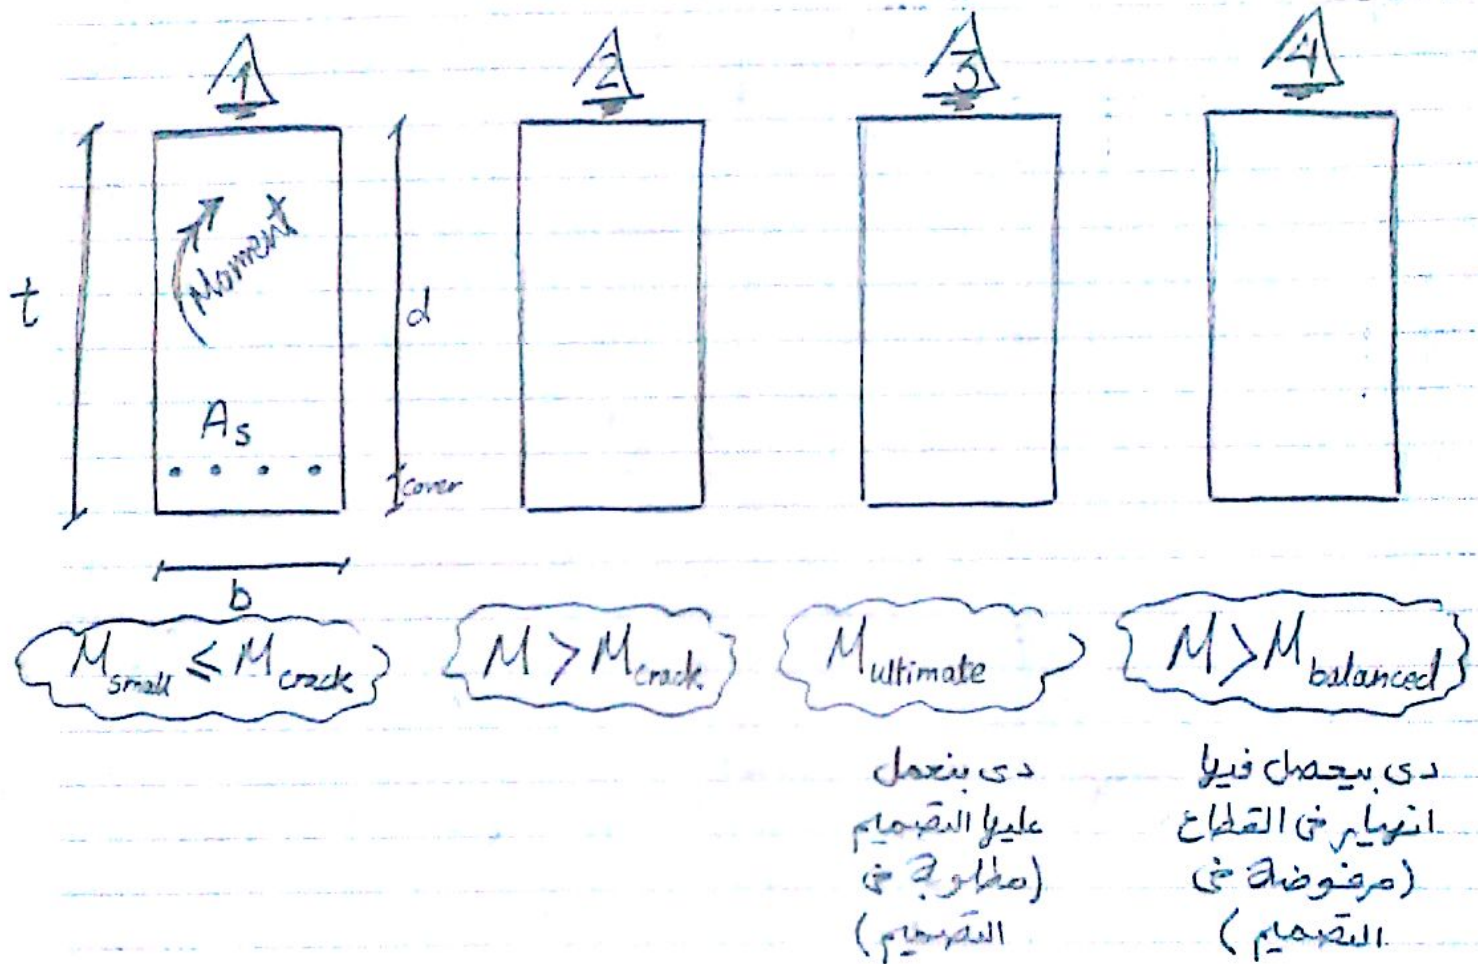 1
2
3
4
Moment
t
d
As
cover
b
M small ≤ M crack
M > M crack
M ultimate
M > M balanced
دى بنعمل
عليها التصميم
(مطلوبة فى
التصميم)
دى بيحصل فيها
انهيار فى القطاع
(مرفوضة فى
التصميم)